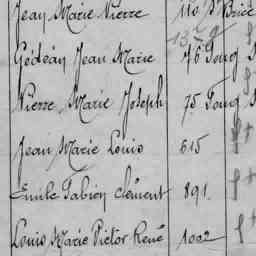 Jean Marie Pierre 110 St Brice
1329
Gédéan Jean Marie 76 Goug
Pierre Marie Joseph 75 Goug
Jean Marie Louis 615
Emile Fabien Clément 891
Louis Marie Victor René 1002